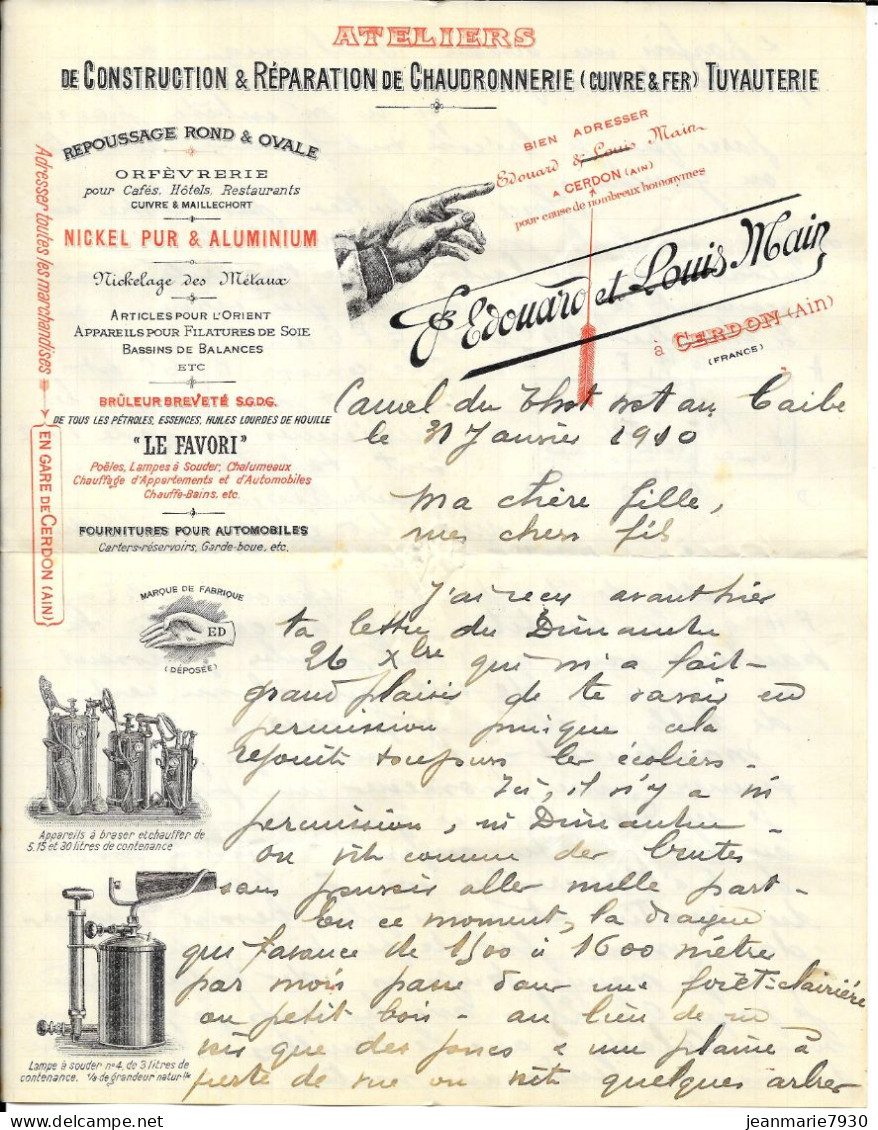 ATELIERS
DE CONSTRUCTION & RÉPARATION DE CHAUDRONNERIE (CUIVRE & FER) TUYAUTERIE
REPOUSSAGE ROND & OVALE
ORFÈVRERIE
pour Cafés, Hôtels, Restaurants
CUIVRE & MAILLECHORT
NICKEL PUR & ALUMINIUM
Nickelage des Métaux
ARTICLES POUR L'ORIENT
APPAREILS POUR FILATURES DE SOIE
BASSINS DE BALANCES
ETC
BRÛLEUR BREVETÉ S.G.D.G.
DE TOUS LES PÉTROLES, ESSENCES, HUILES LOURDES DE HOUILLE
"LE FAVORI"
Poëles, Lampes à Souder, Chalumeaux
Chauffage d'Appartements et d'Automobiles
Chauffe-Bains, etc.
FOURNITURES POUR AUTOMOBILES
Carters-réservoirs, Garde-boue, etc.
Adresser toutes les marchandises
EN GARE DE CERDON (AIN)
BIEN ADRESSER
Edouard & Louis Main
A CERDON (AIN)
pour cause de nombreux homonymes
Edouard et Louis Main
à CERDON (Ain)
(FRANCE)
MARQUE DE FABRIQUE
ED
(DÉPOSÉE)
Appareils à braser et chauffer de
5, 15 et 30 litres de contenance
Lampe à souder nº 4, de 3 litres de
contenance. 1/8 de grandeur natur^lle
Canal du
le 31 Janvier 1910
Ma chère fille,
mes chers fils
J'ai reçu avant hier
ta lettre du Dimanche
26 Xbre qui m'a fait
grand plaisir de te savoir en
permission puisque cela
réjouit toujours les écoliers.
Ici, il n'y a ni
permission, ni Dimanche
on vit comme des brutes
sans pouvoir aller nulle part.
En ce moment, la drague
qui avance de 1500 à 1600 mètres
par mois passe dans une forêt-clairière
ou petit bois - au lieu de ne
voir que des joncs & une plaine à
perte de vue on voit quelques arbres
jeanmarie7930